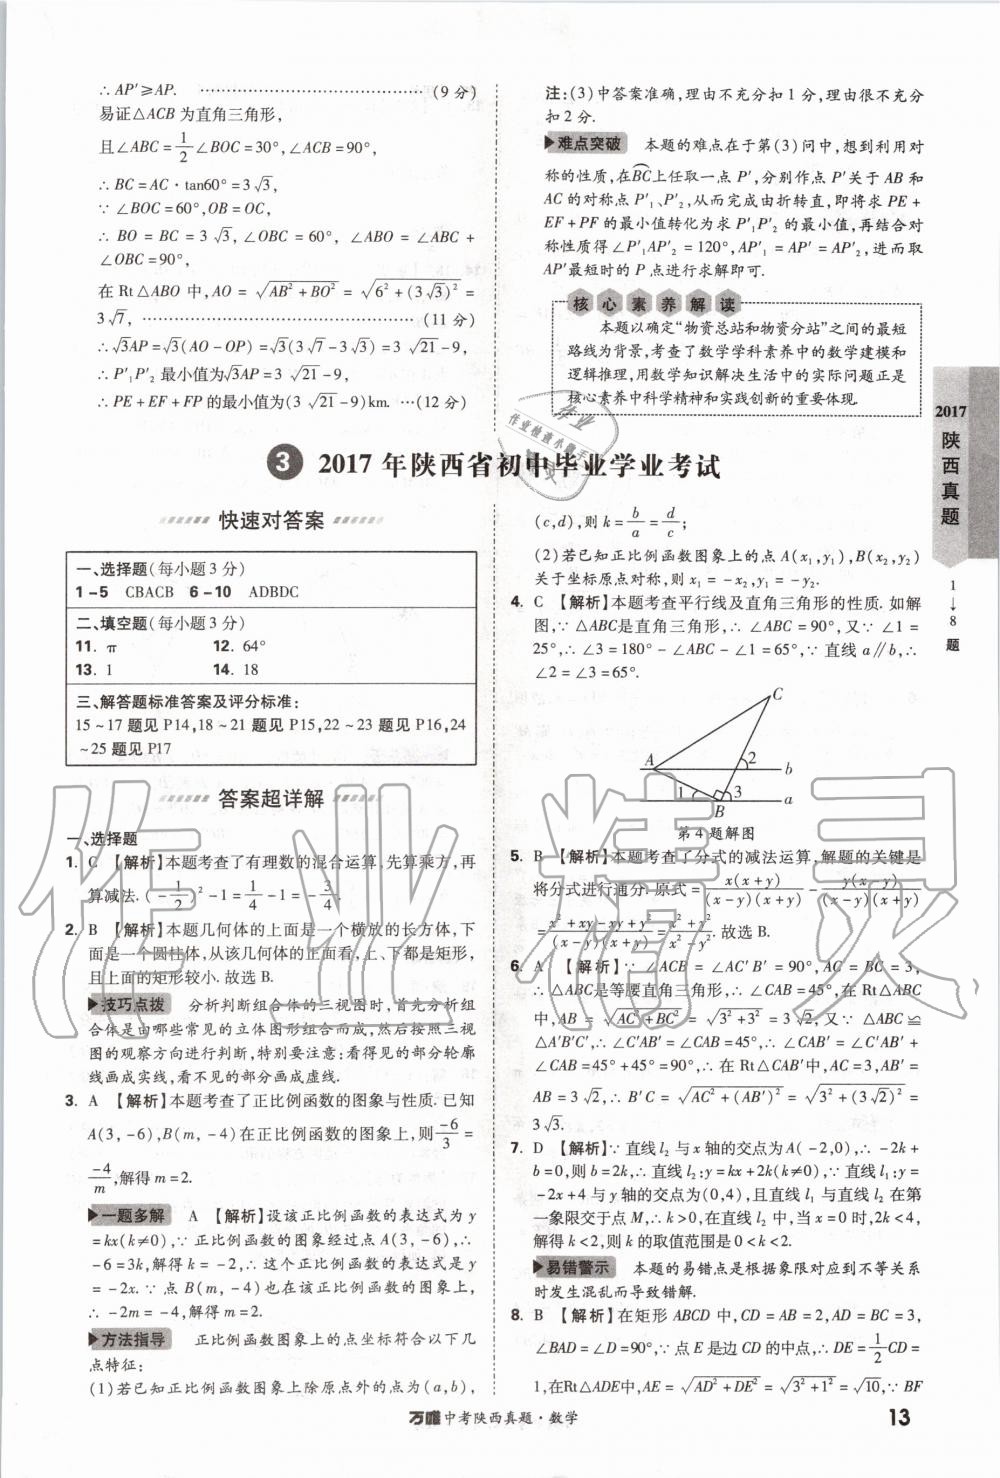 ∴AP′≥AP. ……………………………… (9分)
易证△ACB为直角三角形,
且∠ABC=1/2∠BOC=30°,∠ACB=90°,
∴BC=AC·tan60°=3√3,
∵∠BOC=60°,OB=OC,
∴BO=BC=3√3,∠OBC=60°,∠ABO=∠ABC+
∠OBC=90°,
在Rt△ABO中,AO=√(AB²+BO²)=√(6²+(3√3)²)=
3√7, ……………………………… (11分)
∴√3AP=√3(AO-OP)=√3(3√7-3√3)=3√21-9,
∴P′₁P′₂最小值为√3AP=3√21-9,
∴PE+EF+FP的最小值为(3√21-9)km. …(12分)
注:(3)中答案准确,理由不充分扣1分,理由不充分
扣2分.
难点突破 本题的难点在于第(3)问中,想到利用对
称的性质,在BC上任取一点P′,分别作点P′关于AB和
AC的对称点P′₁、P′₂,从而完成由折转直,即将求PE+
EF+PF的最小值转化为求P′₁P′₂的最小值,再结合对
称性质得∠P′₁AP′₂=120°,AP′₁=AP′=AP′₂,进而取
AP′最短时的P点进行求解即可.
核心素养解读
本题以确定“物资总站和物资分站”之间的最短
路线为背景,考查了数学学科素养中的数学建模和
逻辑推理,用数学知识解决生活中的实际问题正是
核心素养中科学精神和实践创新的重要体现.
3 2017年陕西省初中毕业学业考试
快速对答案
一、选择题(每小题3分)
1-5 CBACB 6-10 ADBDC
二、填空题(每小题3分)
11. π 12. 64°
13. 1 14. 18
三、解答题标准答案及评分标准:
15~17题见P14,18~21题见P15,22~23题见P16,24
~25题见P17
答案超详解
一、选择题
1. C 【解析】本题考查了有理数的混合运算,先算乘方,再
算减法.(-1/2)²-1=1/4-1=-3/4.
2. B 【解析】本题几何体的上面是一个横放的长方体,下
面是一个圆柱体,从该几何体的正面看,上、下都是矩形,
且上面的矩形较小.故选B.
技巧点拨 分析判断组合体的三视图时,首先分析组
合体是由哪些常见的立体图形组合而成,然后按照三视
图的观察方向进行判断,特别要注意:看得见的部分轮廓
线画成实线,看不见的部分画成虚线.
3. A 【解析】本题考查了正比例函数的图象与性质.已知
A(3,-6),B(m,-4)在正比例函数的图象上,则-6/3=
-4/m,解得m=2.
一题多解 A 【解析】设该正比例函数的表达式为y
=kx(k≠0),∵正比例函数的图象经过点A(3,-6),∴
-6=3k,解得k=-2,∴这个正比例函数的表达式是
y=-2x.∵点B(m,-4)也在该正比例函数的图象上,
∴-2m=-4,解得m=2.
方法指导 正比例函数图象上的点坐标符合以下几
点特征:
(1)若已知正比例函数图象上除原点外的点为(a,b),
(c,d),则k=b/a=d/c;
(2)若已知正比例函数图象上的点A(x₁,y₁),B(x₂,y₂)
关于坐标原点对称,则x₁=-x₂,y₁=-y₂.
4. C 【解析】本题考查平行线及直角三角形的性质.如解
图,∵△ABC是直角三角形,∴∠ABC=90°,又∵∠1=
25°,∴∠3=180°-∠ABC-∠1=65°,∵直线a∥b,∴
∠2=∠3=65°.
C
A
2
b
1
3
a
B
第4题解图
5. B 【解析】本题考查了分式的减法运算,解题的关键是
将分式进行通分.原式=x(x+y)/(x-y)(x+y)-y(x-y)/(x-y)(x+y)
=x²+xy-xy+y²/(x-y)(x+y)=x²+y²/x²-y².故选B.
6. A 【解析】∵∠ACB=∠AC′B′=90°,AC=BC=3,
∴△ABC是等腰直角三角形,∴∠CAB=45°,在Rt△ABC
中,AB=√(AC²+BC²)=√(3²+3²)=3√2,又∵△ABC≌
△A′B′C′,∴∠C′AB′=∠CAB=45°,∴∠CAB′=∠C′AB′+
∠CAB=45°+45°=90°,∴在Rt△CAB′中,AC=3,AB′=
AB=3√2,∴B′C=√(AC²+(AB′)²)=√(3²+(3√2)²)=
3√3.
7. D 【解析】∵直线l₂与x轴的交点为A(-2,0),∴-2k+
b=0,则b=2k,∴直线l₂:y=kx+2k(k≠0),∵直线l₁:y=
-2x+4与y轴的交点为(0,4),且直线l₁与直线l₂在第
一象限交于点M,∴k>0,在直线l₂中,当x=0时,2k<4,
解得k<2,则k的取值范围是0<k<2.
易错警示 本题的易错点是根据象限对应到不等关系
时发生混乱而导致错解.
8. B 【解析】在矩形ABCD中,CD=AB=2,AD=BC=3,
∠BAD=∠D=90°,∵点E是边CD的中点,∴DE=1/2CD=
1,在Rt△ADE中,AE=√(AD²+DE²)=√(3²+1²)=√10,∵BF
2017
陕西真题
1→8题
万唯中考陕西真题·数学
13
作业精灵